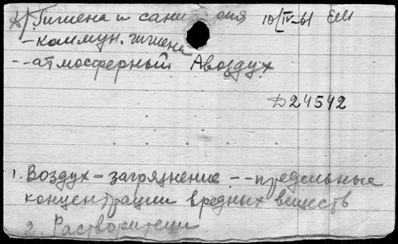 К/. Гигиена и сани рия 10/IV-61 ЕМ
- коммун. гигиена
-- атмосферный Авоздух
Д24542
1. Воздух - загрязнение -- предельные
концентрации вредных веществ
2. Растворители